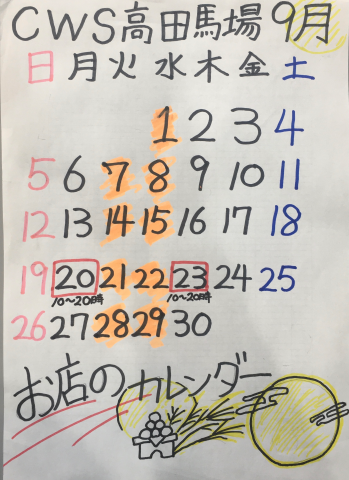 CWS高田馬場 9月
日 月 火 水 木 金 土
1 2 3 4
5 6 7 8 9 10 11
12 13 14 15 16 17 18
19 20 21 22 23 24 25
10～20時 10～20時
26 27 28 29 30
お店のカレンダー